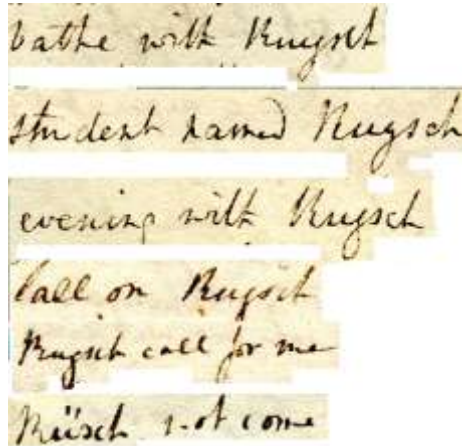 bathe with Ruysch
student named Ruysch
evening with Ruysch
Call on Ruysch
Ruysch call for me
Rüsch not come